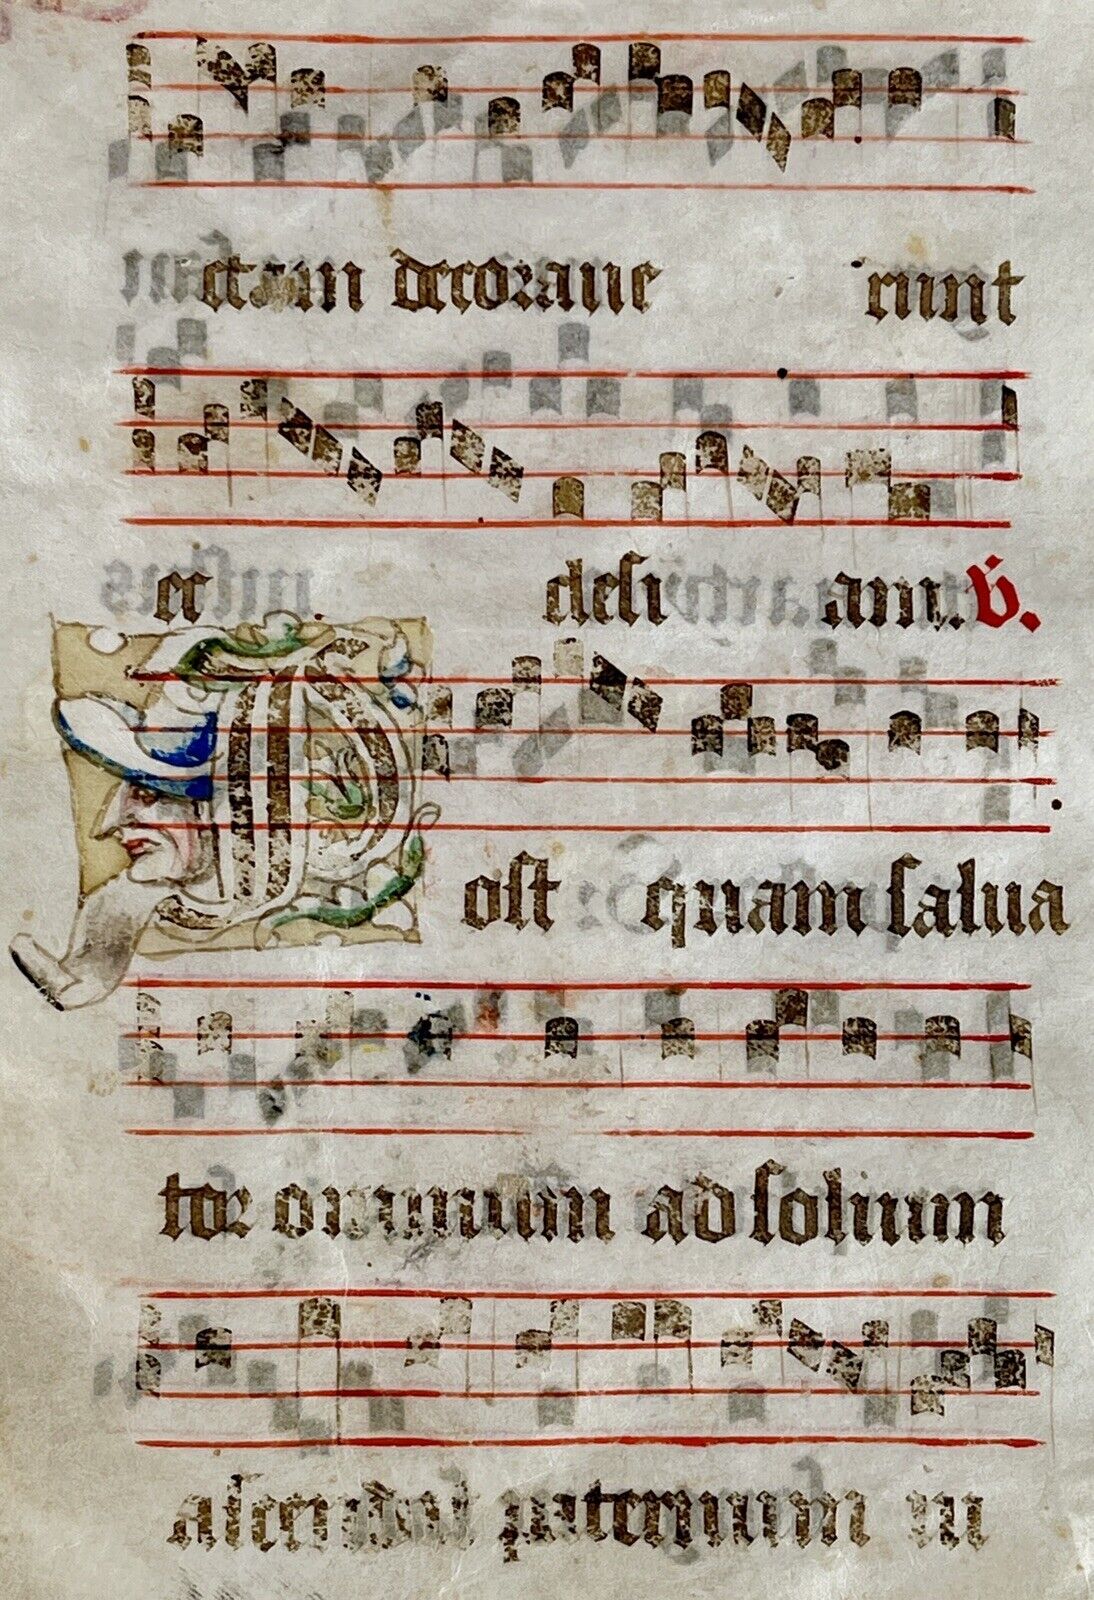 ctam decoraue runt
ec clesi am. V.
Post quam salua
tor omnium ad solium
ascendit paternum in